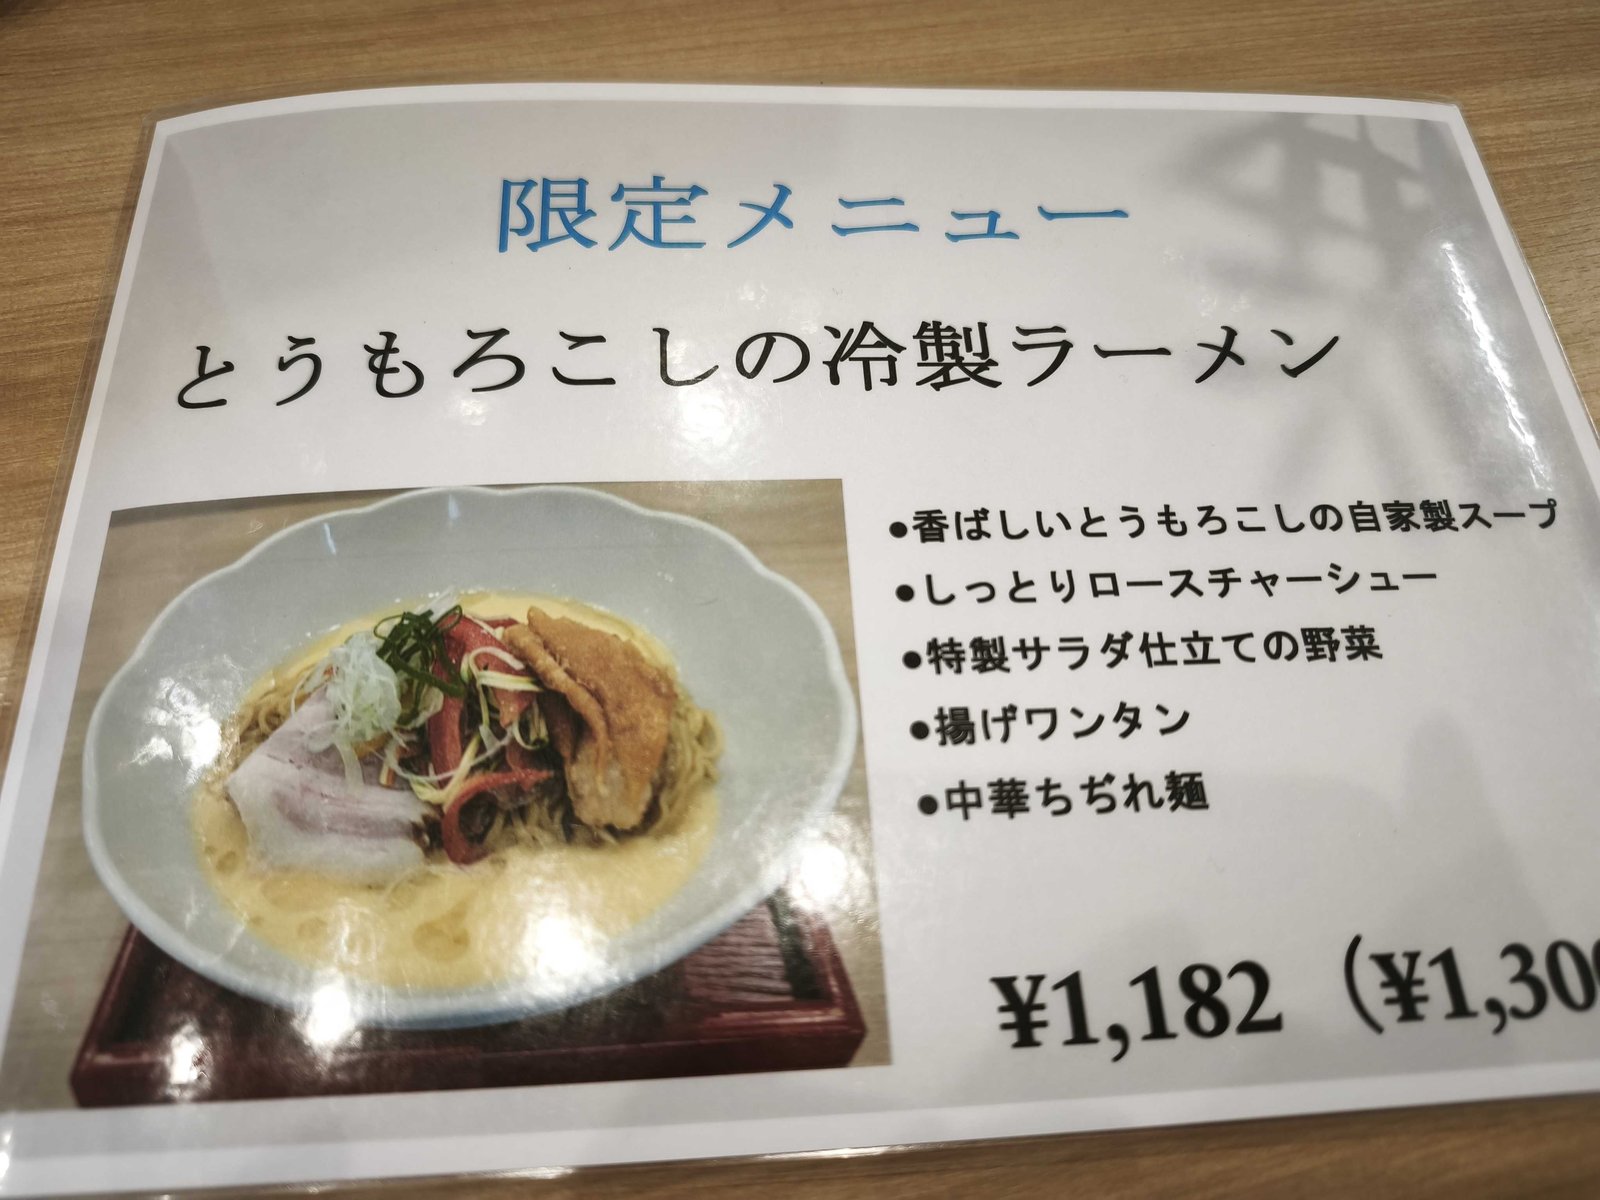 限定メニュー
とうもろこしの冷製ラーメン
●香ばしいとうもろこしの自家製スープ
●しっとりロースチャーシュー
●特製サラダ仕立ての野菜
●揚げワンタン
●中華ちぢれ麺
¥1,182（¥1,300